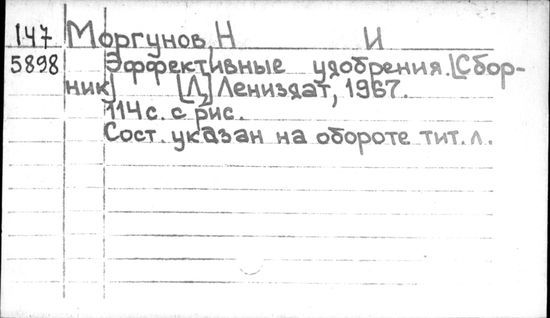 147 Моргунов, Н И
5898 Эффективные удобрения. [Сбор-
ник] [Л.], Лениздат, 1967.
114 с. с рис.
Сост. указан на обороте тит. л.